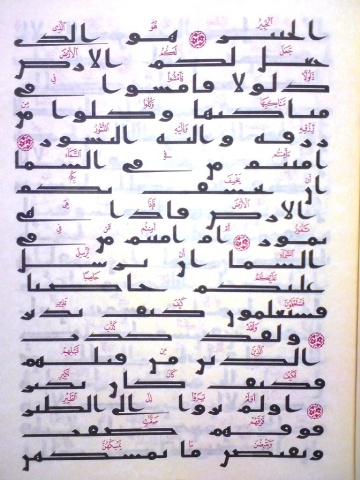 الخبير ۝ هو الذي
جعل لكم الارض
ذلولا فامشوا في
مناكبها وكلوا من
رزقه واليه النشور ۝
امنتم من في السما
ان يخسف بكم
الارض فاذا هي
تمور ۝ ام امنتم من في
السما ان يرسل
عليكم حاصبا
فستعلمون كيف نذير
۝ ولقد كذب
الذين من قبلهم
فكيف كان نكير
۝ اولم يروا الى الطير
فوقهم صفت
ويقبضن ما يمسكهن